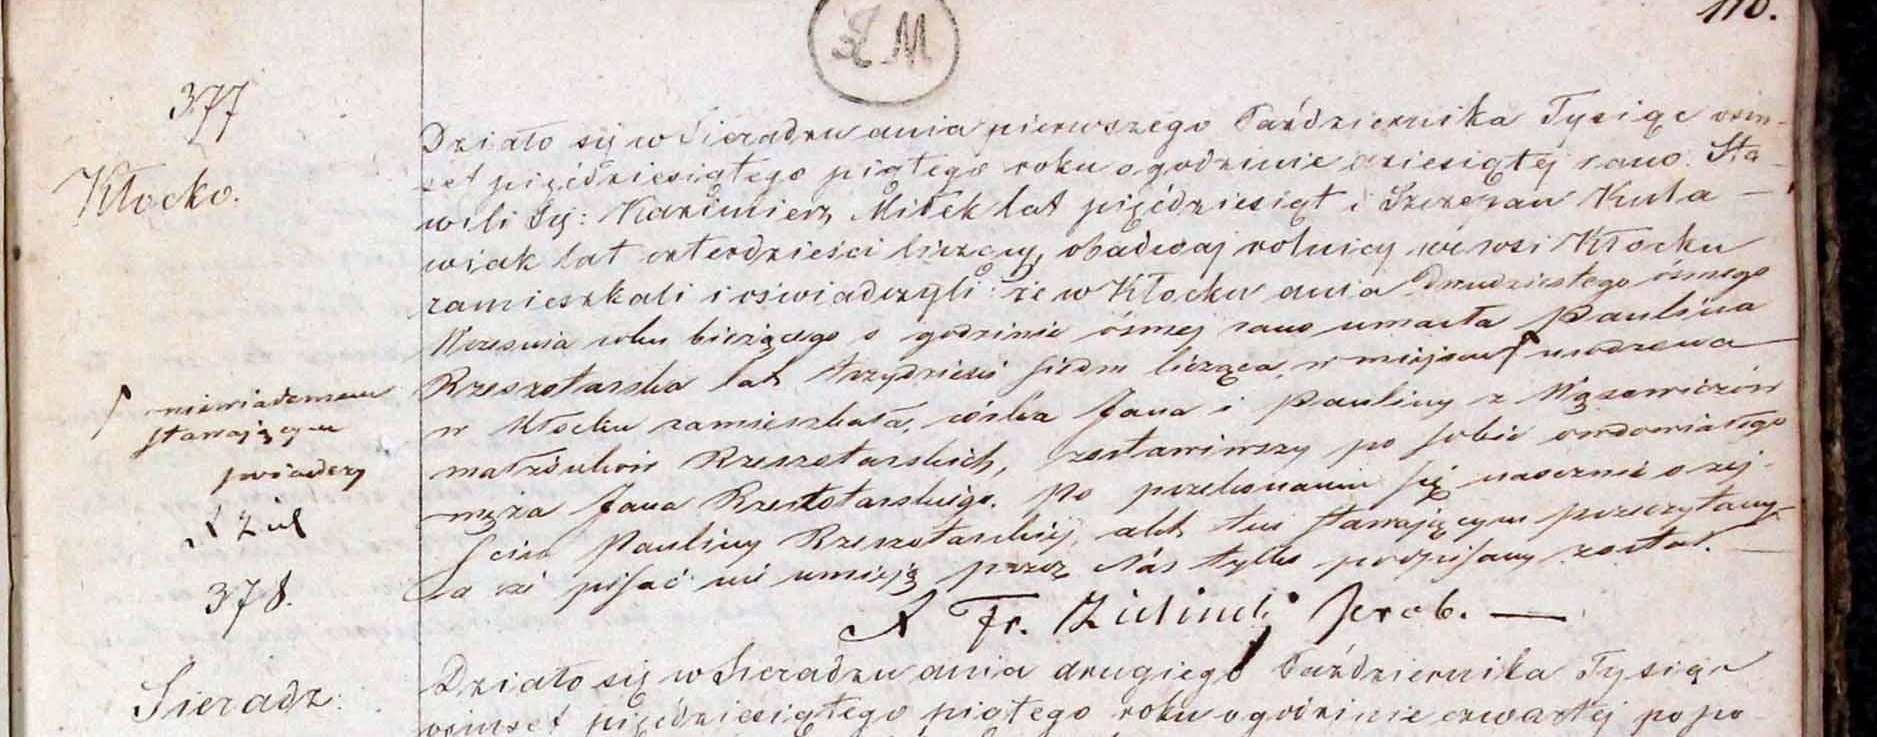 110.
377
Kłocko.
Działo się w Sieradzu dnia pierwszego Października Tysiąc ośm-
set pięćdziesiątego piątego roku o godzinie dziesiątej rano. Sta-
wili się: Kazimierz Miłek lat pięćdziesiąt i Szczepan Kuła-
wiak lat czterdzieści liczący, obadwaj rolnicy we wsi Kłocku
zamieszkali i oświadczyli że w Kłocku dnia Dwudziestego ósmego
Września roku bieżącego o godzinie ósmej rano umarła Paulina
Rzeszotarska lat trzydzieści siedm licząca, w miejscu urodzona
niewiadomem
stawającym
poświadczy
w Kłocku zamieszkała, córka Jana i Pauliny z Wąsowiczów
małżonków Rzeszotarskich, zostawiwszy po sobie owdowiałego
męża Jana Rzeszotarskiego. Po przekonaniu się naocznie o zej-
ściu Pauliny Rzeszotarskiej, akt ten stawającym przeczytany
a że pisać nie umieją przez Nas tylko podpisany został.
X Fr. Zieliński
378.
Sieradz.
Działo się w Sieradzu dnia drugiego Października Tysiąc
ośmset pięćdziesiątego piątego roku o godzinie czwartej po po-